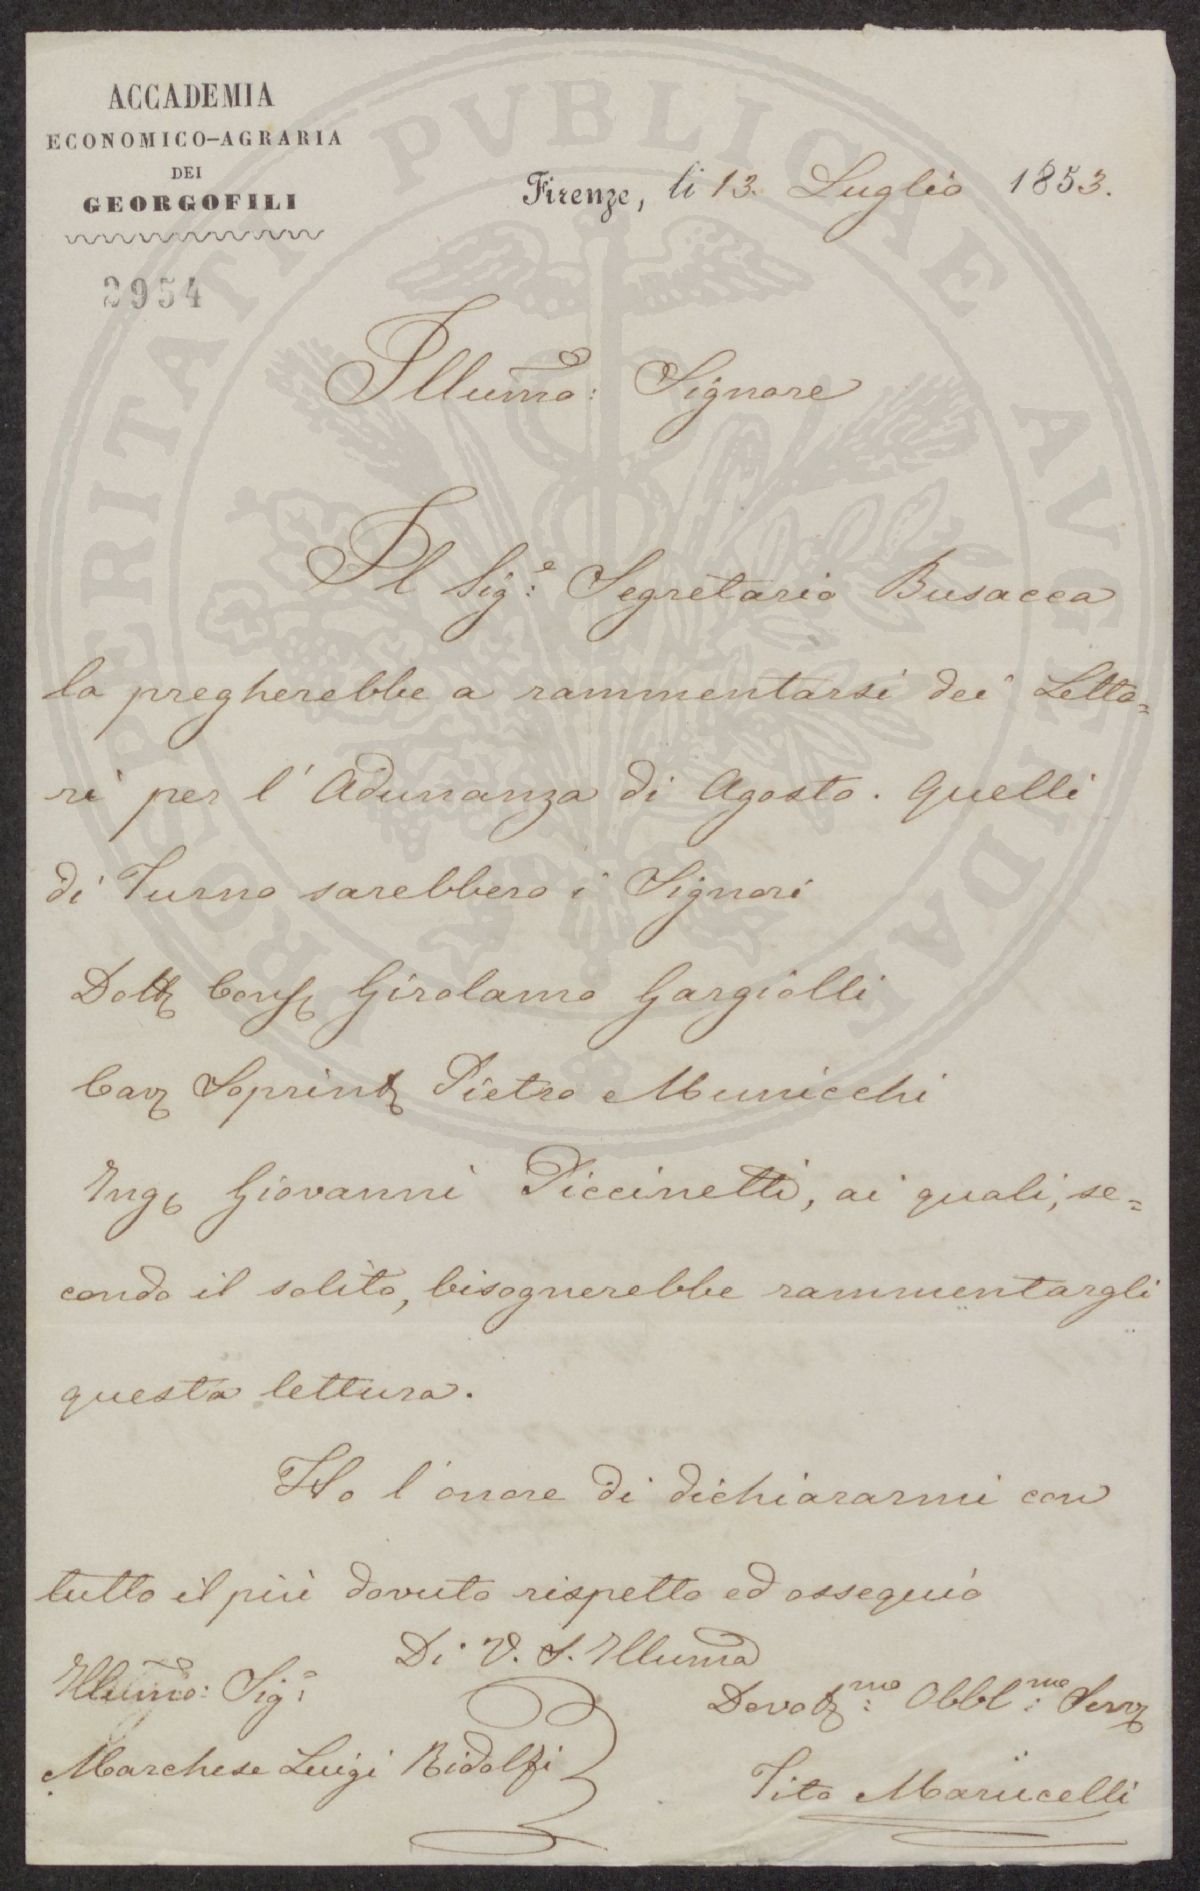 ACCADEMIA
ECONOMICO-AGRARIA
DEI
GEORGOFILI
2954
Firenze, li 13. Luglio 1853.
Illumo: Signore
Il Sig:e Segretario Busacca
la pregherebbe a rammentarsi dei Letto=
ri per l'Adunanza di Agosto. Quelli
di Turno sarebbero i Signori
Dott Cons Girolamo Gargiolli
Cav Soprint Pietro Municchi
Ing Giovanni Piccinetti, ai quali, se=
condo il solito, bisognerebbe rammentargli
questa lettura.
Ho l'onore di dichiararmi con
tutto il più dovuto rispetto ed ossequio
Di V. S. Illuma
Illumo: Sig:e
Marchese Luigi Ridolfi
Devot:mo Obbl:mo Serv
Tito Marucelli
PROSPERITATI PVBLICAE AVGENDAE